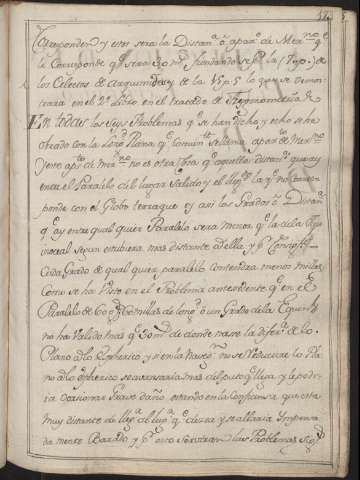 Corresponden y esta sera la Distan.ª ô apar.º de Mer.no q.e
le Corresponde
los de Arquimides y de la 15 p 5 lo que se demos
trara en el 2º Libro en el tratado de Trigonometria &
En todas los seys Problemas q.e se han d.cho y echo se ha
obrado con la Long.d Plana q.e comun.te se llama apar.to de Mer.no
y este ap.to de m.no no es otra Cosa q.e aquella distan.ª que ay
entre el Paralelo del lugar Salido y el lleg.do la q.e no Corres
ponde con el Globo terraqueo y asi los Grados ô Distan.ª
q.e ay entre qual quier Paralelo sera menor q.e la de la Equi
nocial segun estubiera mas distante de ella y p.r Consig.te
Cada Grado de qual quier paralelo contendra menos millas
Como se ha Visto en el Problema antesedente q.e en el
Paralelo de 60 g.s 60 millas de long.d ô un Grado de la Equin.l
no ha Valido mas q.e 30 m.s de donde nase la difer.ª de lo
Plano â lo Espherico y si en la Naveg.n no se Reduciese lo Pla
no â lo espherico se atrasaria mas del punto q.e lleva y le podri
a ocasionar Grave daño estando en la Confianza que esta
muy distante de lleg.r al lug.r q.e desea y se allaria Ympensa
da mente Barado y p.r esto se los Problemas Sig.tes